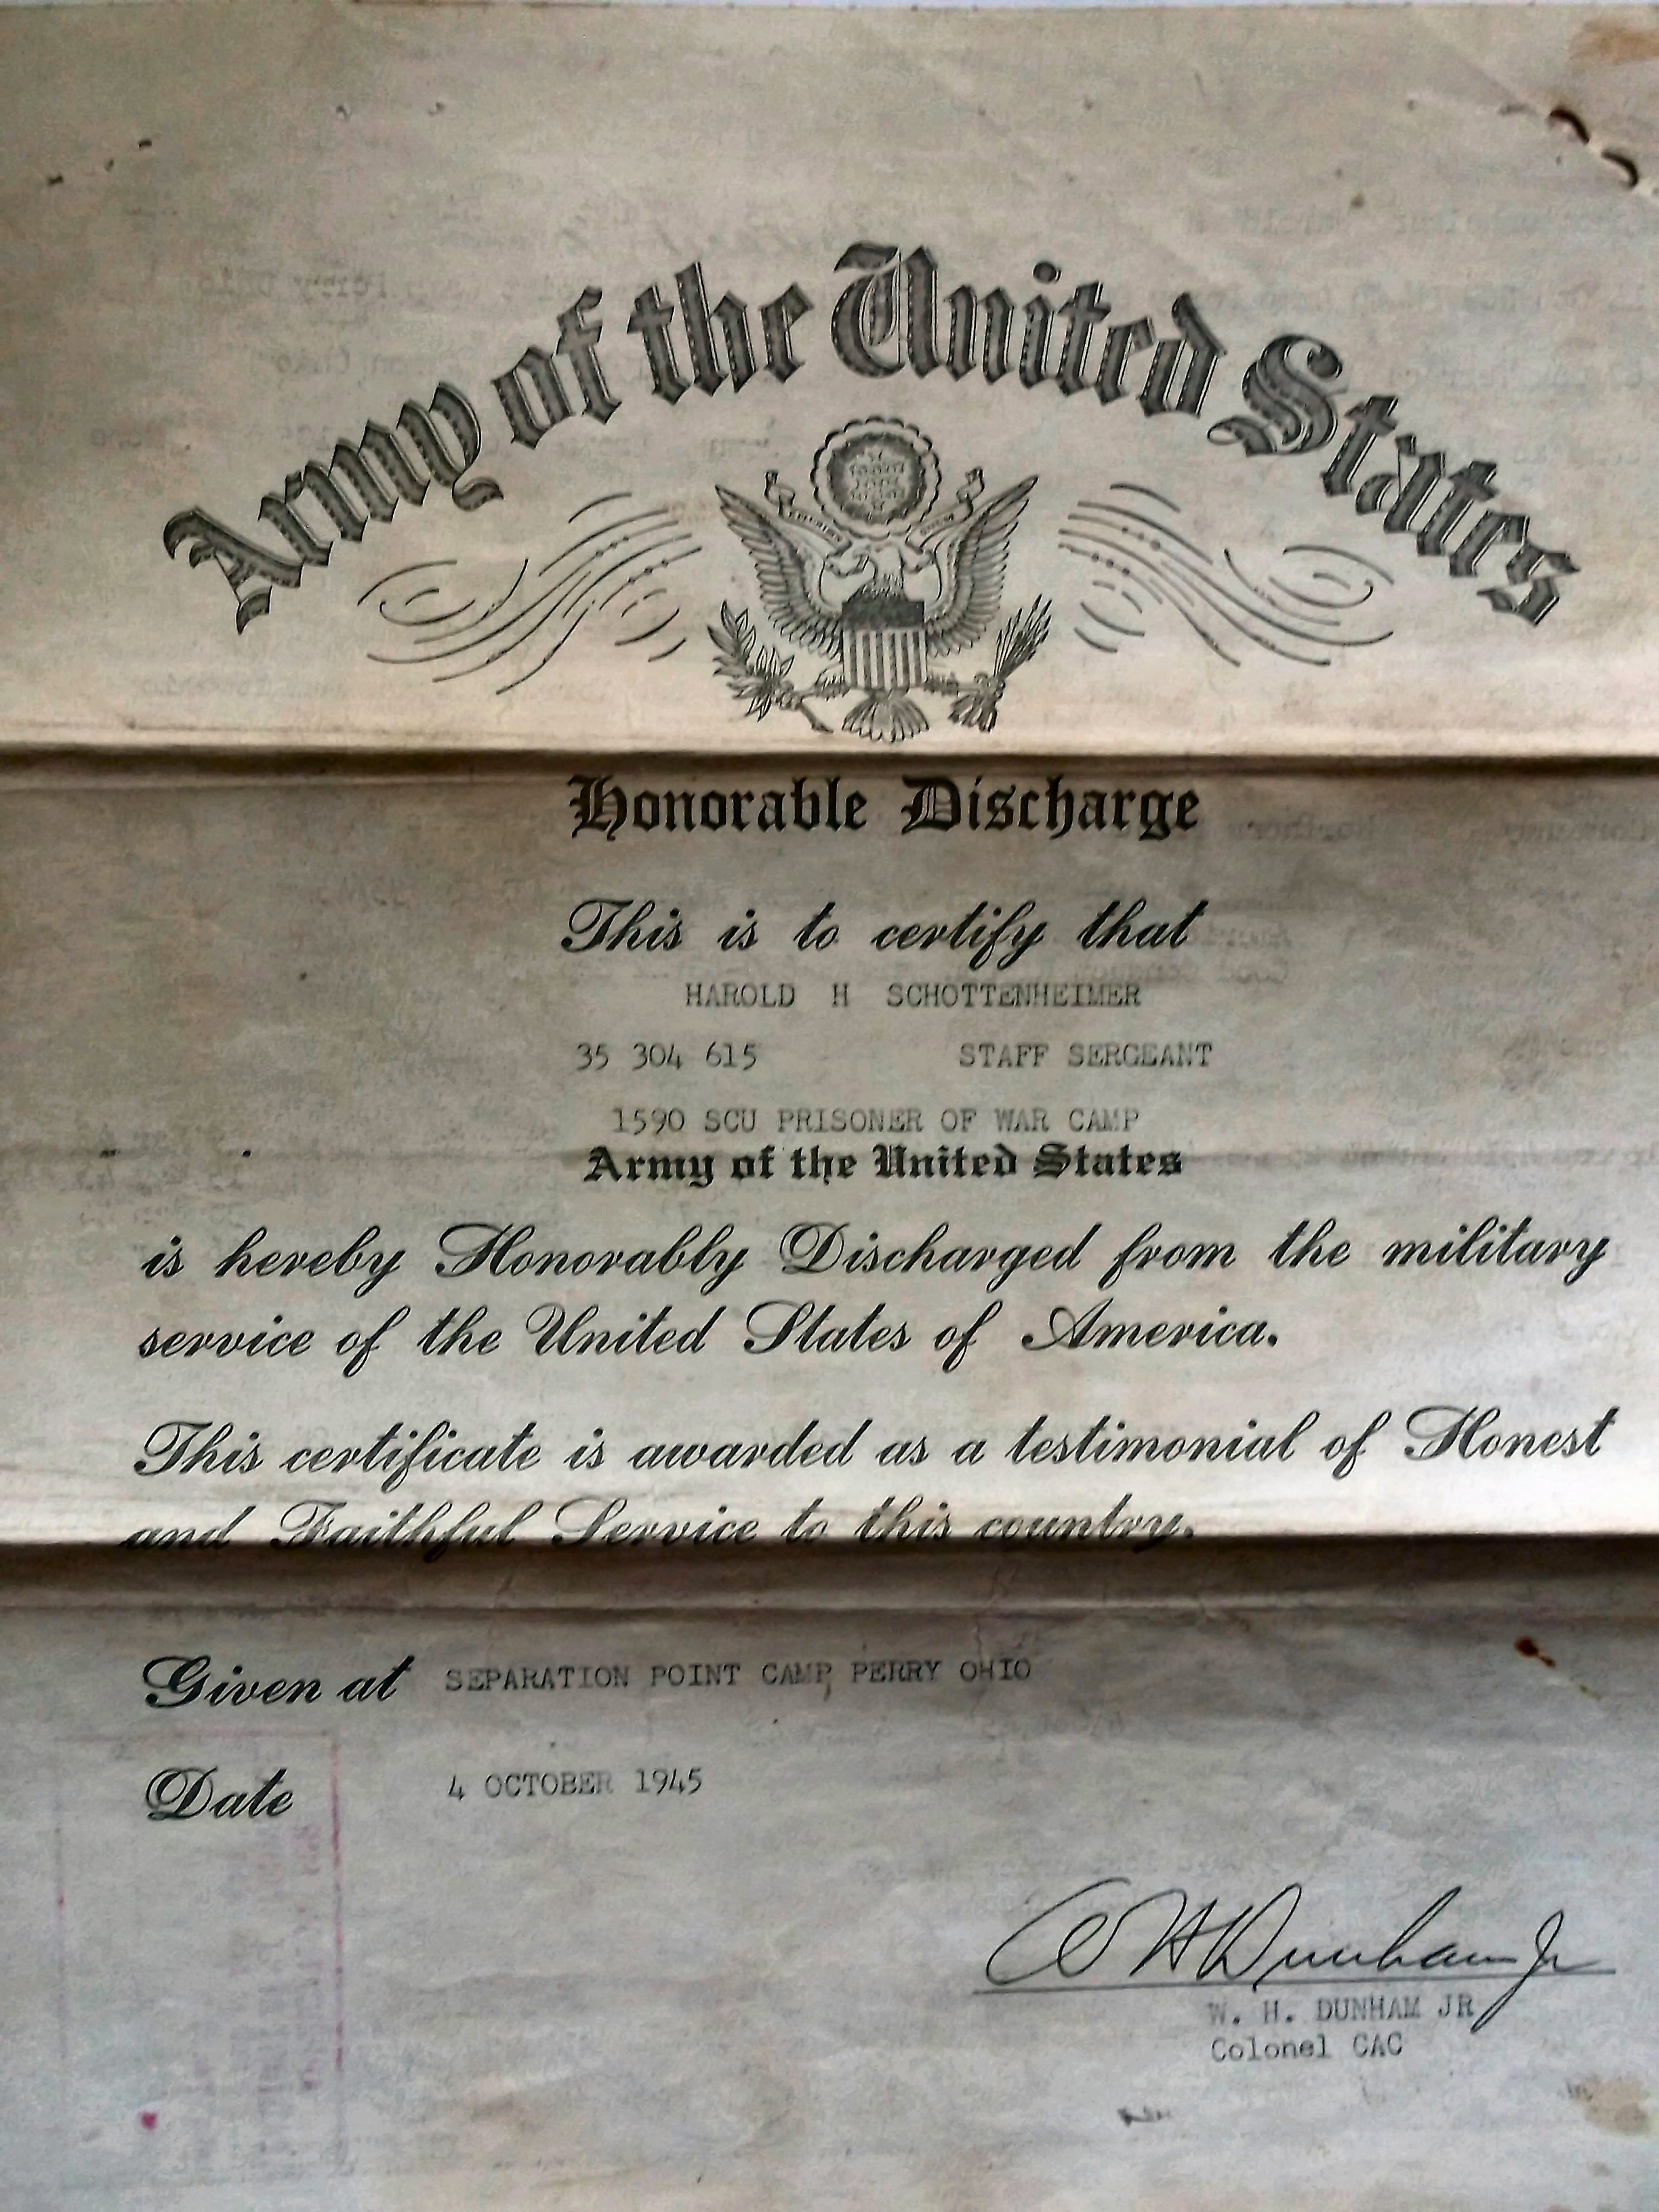 Army of the United States
Honorable Discharge
This is to certify that
HAROLD H SCHOTTENHEIMER
35 304 615 STAFF SERGEANT
1590 SCU PRISONER OF WAR CAMP
Army of the United States
is hereby Honorably Discharged from the military
service of the United States of America.
This certificate is awarded as a testimonial of Honest
and Faithful Service to this country.
Given at SEPARATION POINT CAMP PERRY OHIO
Date 4 OCTOBER 1945
W H Dunham Jr
W. H. DUNHAM JR
Colonel CAC